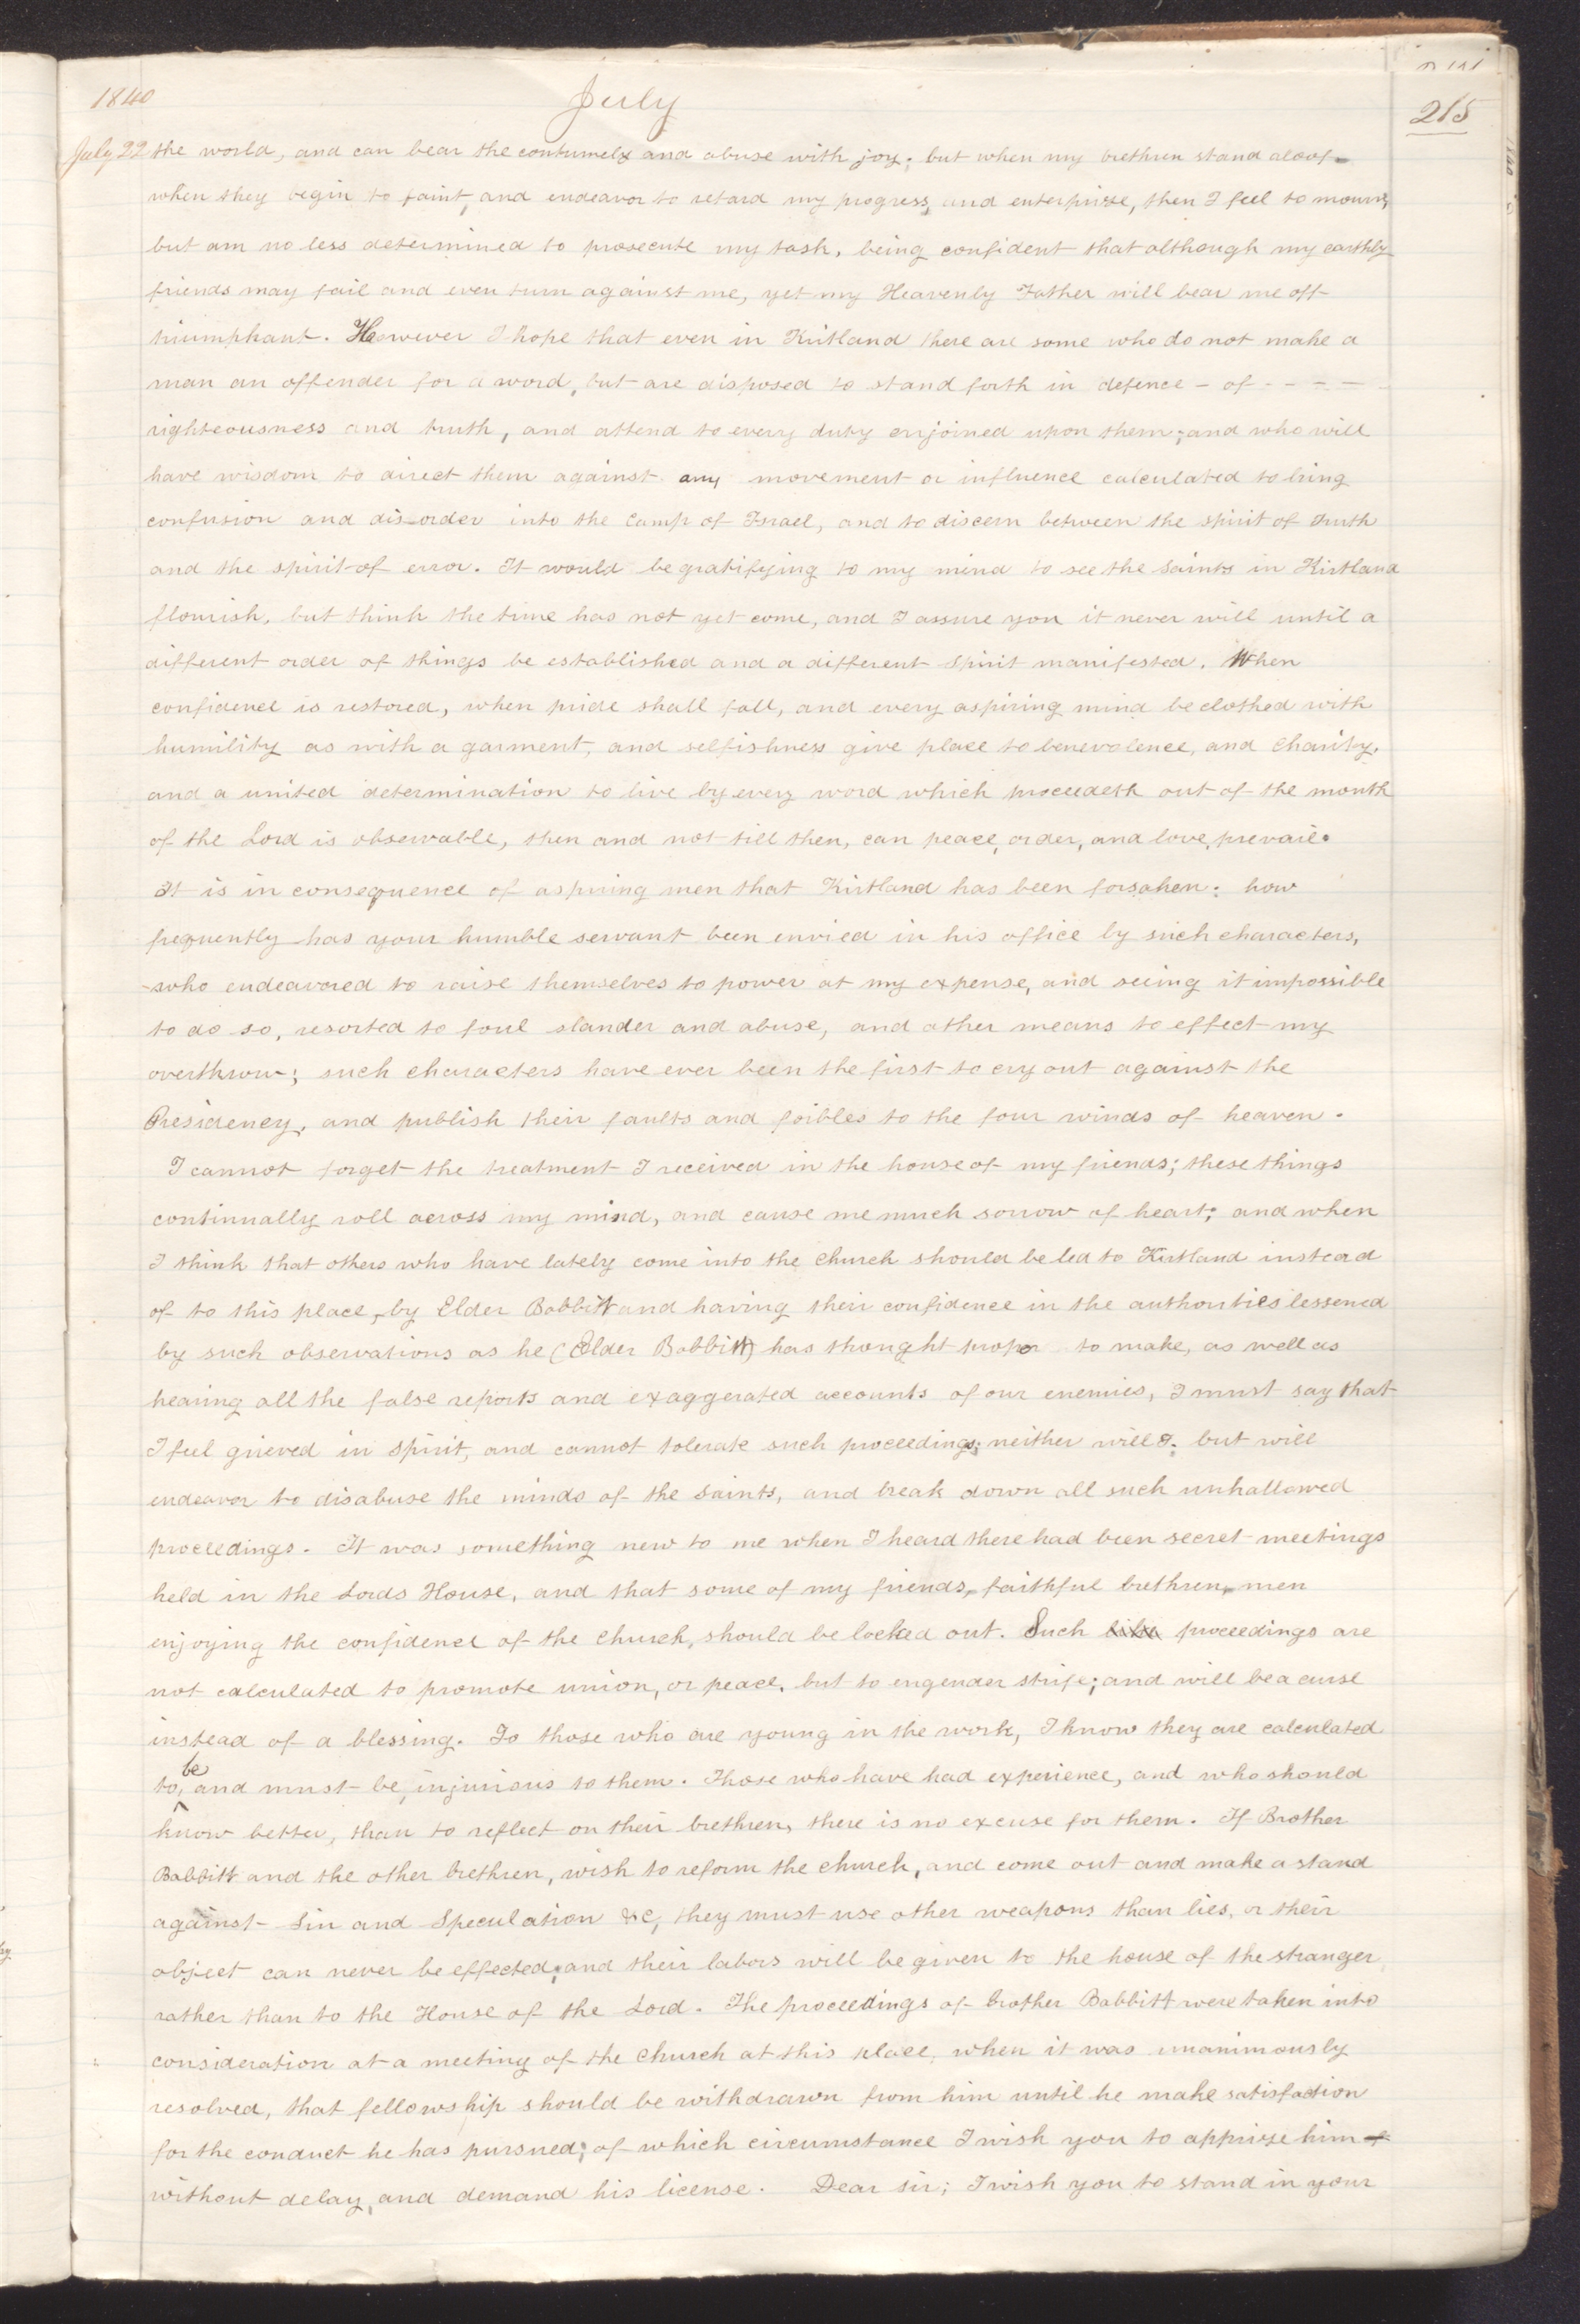 1840
July
215
July 22 the world, and can bear the contumely and abuse with joy; but when my brethren stand aloof-
when they begin to faint, and endeavor to retard my progress, and enterprize, then I feel to mourn,
but am no less determined to prosecute my task, being confident that although my earthly
friends may fail and even turn against me, yet my Heavenly Father will bear me off
triumphant. However I hope that even in Kirtland there are some who do not make a
man an offender for a word, but are disposed to stand forth in defence - of - - - -
righteousness and truth, and attend to every duty enjoined upon them; and who will
have wisdom to direct them against any movement or influence calculated to bring
confusion and dis-order into the camp of Israel, and to discern between the spirit of truth
and the spirit of error. It would be gratifying to my mind to see the saints in Kirtland
flourish, but think the time has not yet come, and I assure you it never will until a
different order of things be established and a different spirit manifested. When
confidence is restored, when pride shall fall, and every aspiring mind be clothed with
humility as with a garment, and selfishness give place to benevolence, and charity,
and a united determination to live by every word which proceedeth out of the mouth
of the Lord is observable, then and not till then, can peace, order, and love, prevail.
It is in consequence of aspiring men that Kirtland has been forsaken: how
frequently has your humble servant been envied in his office by such characters,
who endeavored to raise themselves to power at my expense, and seeing it impossible
to do so, resorted to foul slander and abuse, and other means to effect my
overthrow; such characters have ever been the first to cry out against the
Presidency, and publish their faults and foibles to the four winds of heaven.
I cannot forget the treatment I received in the house of my friends; these things
continually roll across my mind, and cause me much sorrow of heart; and when
I think that others who have lately come into the church should be led to Kirtland instead
of to this place, by Elder Babbitt and having their confidence in the authorities lessened
by such observations as he (Elder Babbitt) has thought proper to make, as well as
hearing all the false reports and exaggerated accounts of our enemies, I must say that
I feel grieved in spirit, and cannot tolerate such proceedings; neither will I; but will
endeavor to disabuse the minds of the saints, and break down all such unhallowed
proceedings. It was something new to me when I heard there had been secret meetings
held in the Lords House, and that some of my friends, faithful brethren, men
enjoying the confidence of the church, should be locked out. Such like proceedings are
not calculated to promote union, or peace, but to engender strife; and will be a curse
instead of a blessing. To those who are young in the work, I know they are calculated
to be, and must be, injurious to them. Those who have had experience, and who should
know better, than to reflect on their brethren, there is no excuse for them. If Brother
Babbitt and the other brethren, wish to reform the church, and come out and make a stand
against Sin and Speculation &c, they must use other weapons than lies, or their
object can never be effected; and their labors will be given to the house of the stranger,
rather than to the House of the Lord. The proceedings of brother Babbitt were taken into
consideration at a meeting of the church at this place, when it was unanimously
resolved, that fellowship should be withdrawn from him until he make satisfaction
for the conduct he has pursued; of which circumstance I wish you to apprize him of
without delay, and demand his license. Dear sir; I wish you to stand in your